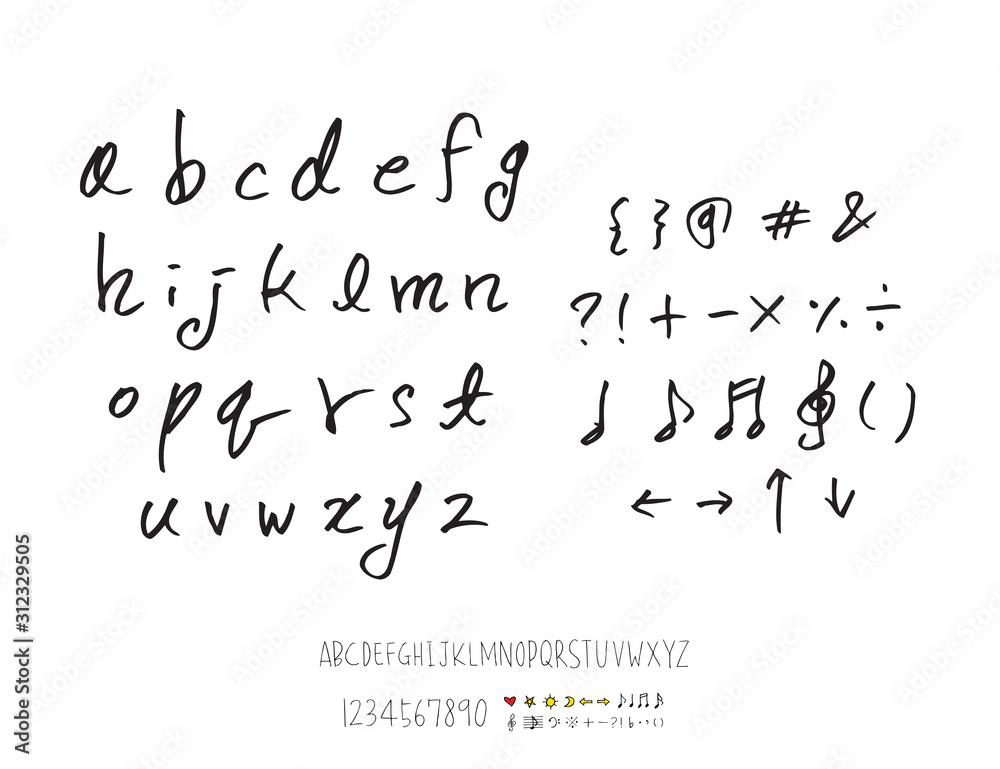 a b c d e f g
h i j k l m n
o p q r s t
u v w x y z
{ } @ # &
? ! + - × ٪ ÷
♩ ♪ ♫ 𝄞 ( )
← → ↑ ↓
ABCDEFGHIJKLMNOPQRSTUVWXYZ
1234567890
Adobe Stock | #312329505